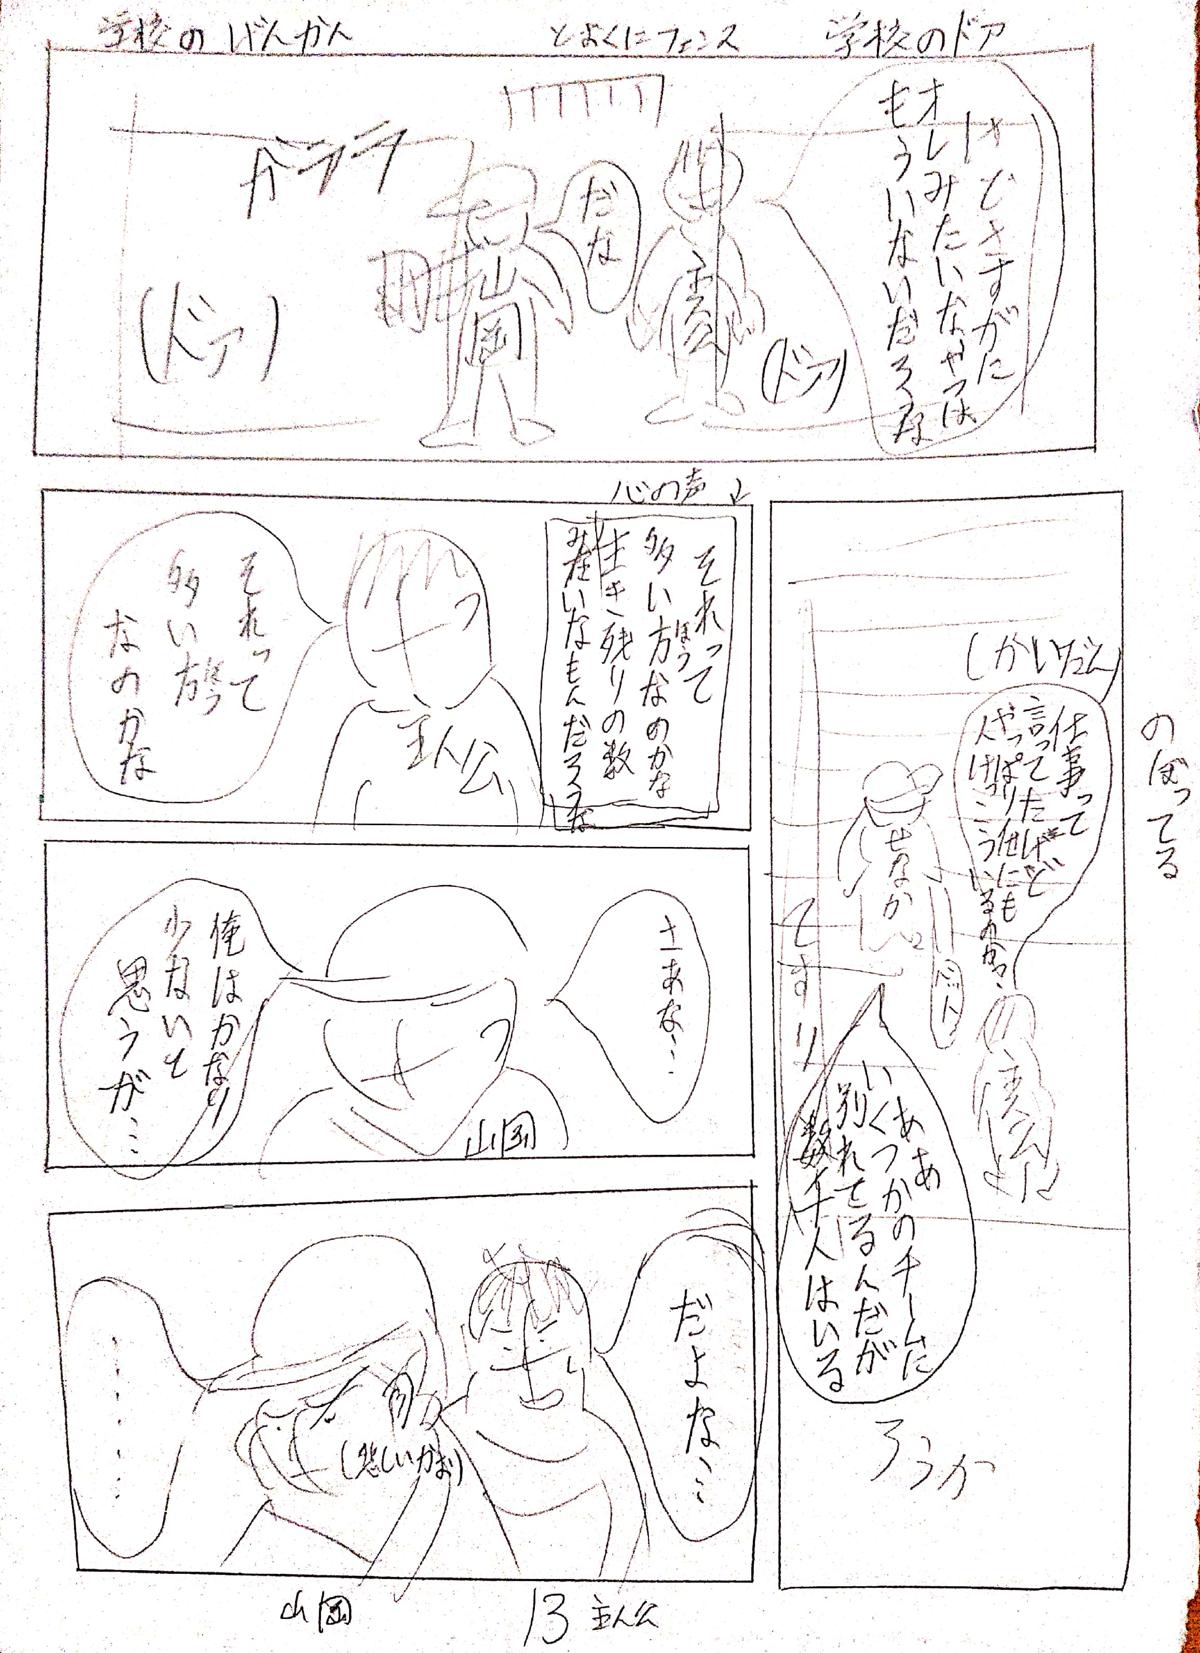 学校のげんかん
とおくにフェンス
学校のドア
さすがに
オレみたいなやつは
もういないだろうな
だな
ガララ
(ドア)
山岡
主人公
(ドア)
のぼってる
(かいだん)
仕事って
言ってたけど
やっぱり他にも
人けっこういるのか?
せなか
バット
てすり
主人公
ああ
いくつかのチームに
別れてるんだが
数千人はいる
ろうか
心の声↓
それって
多い方なのかな
ほう
生き残りの数
みたいなもんだろうな
それって
多い方
ほう
なのかな
主人公
さあな…
俺はかなり
少ないと
思うが…
山岡
だよな…
(悲しいかお)
……
山岡
13
主人公